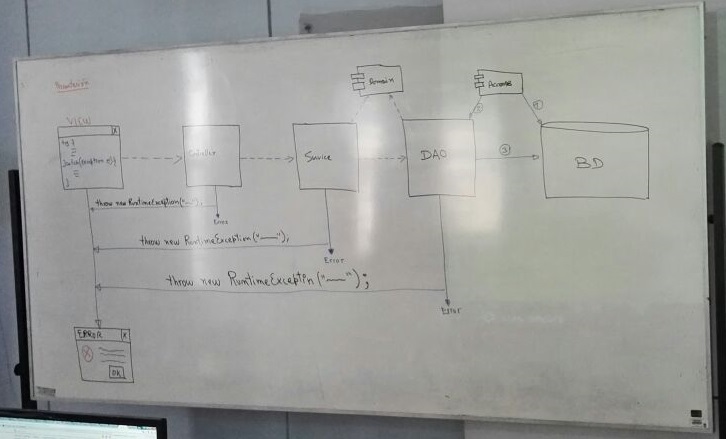 VIEW
X
try {
} catch (Exception e) {
}
Controller
Service
Domain
DAO
Acceso
1
2
3
BD
throw new RuntimeException("——");
Error
throw new RuntimeException("——");
Error
throw new RuntimeException("——");
Error
ERROR X
OK